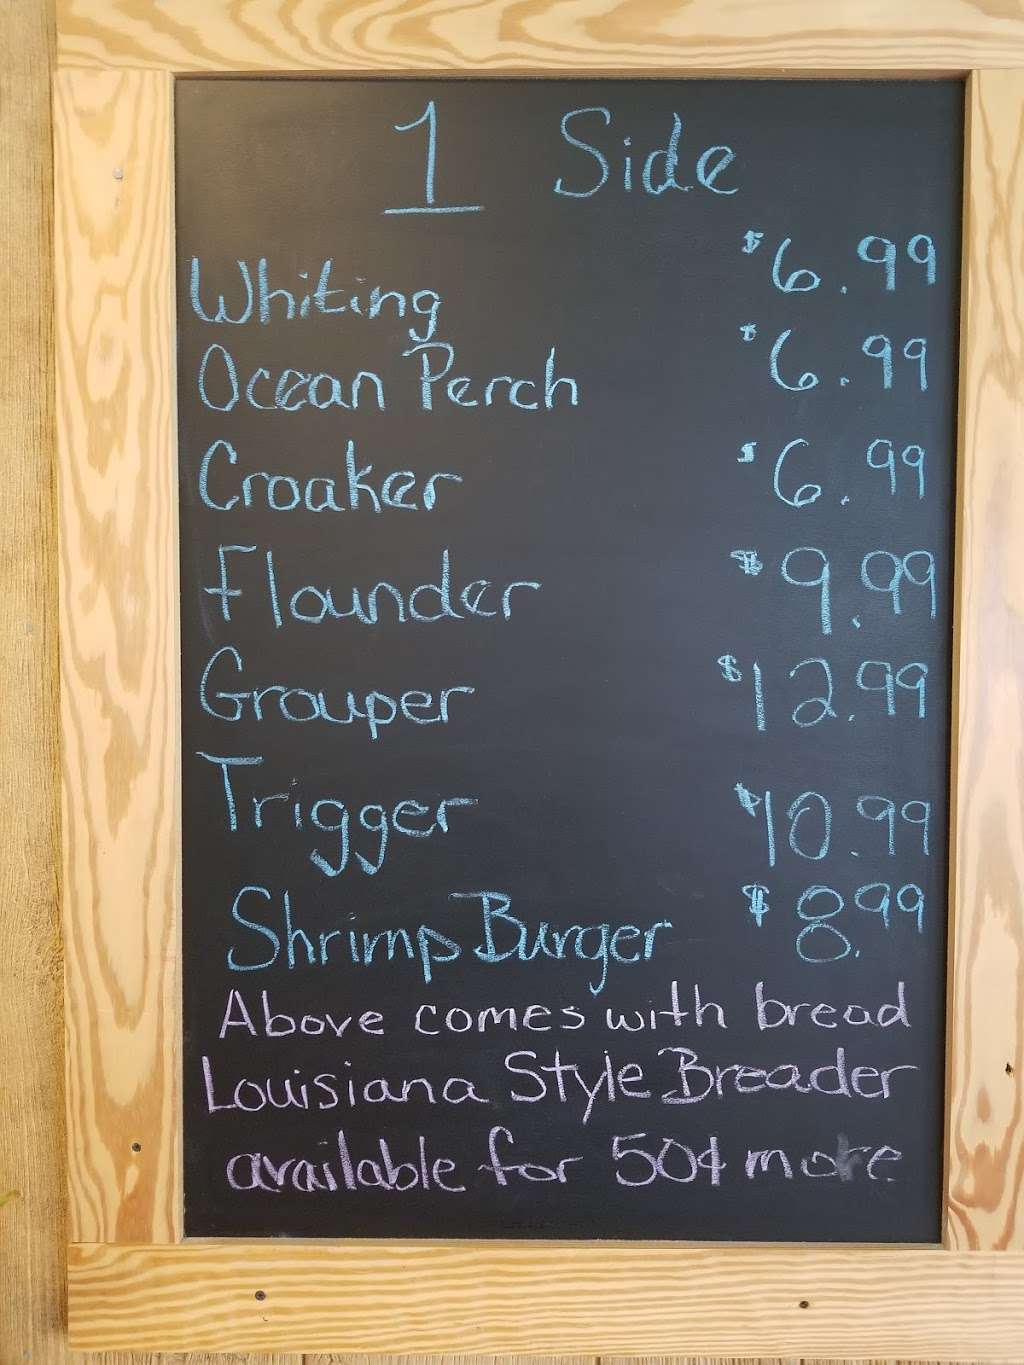 1 Side
Whiting $6.99
Ocean Perch $6.99
Croaker $6.99
Flounder $9.99
Grouper $12.99
Trigger $10.99
Shrimp Burger $8.99
Above comes with bread
Louisiana Style Breader
available for 50¢ more